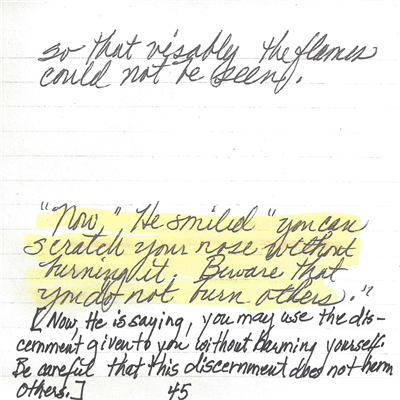 so that visably the flames
could not be seen.
"Now," He smiled "you can
scratch your nose without
burning it. Beware that
you do not burn others."
[Now, He is saying, you may use the dis-
cernment given to you without harming yourself.
Be careful that this discernment does not harm
others.] 45